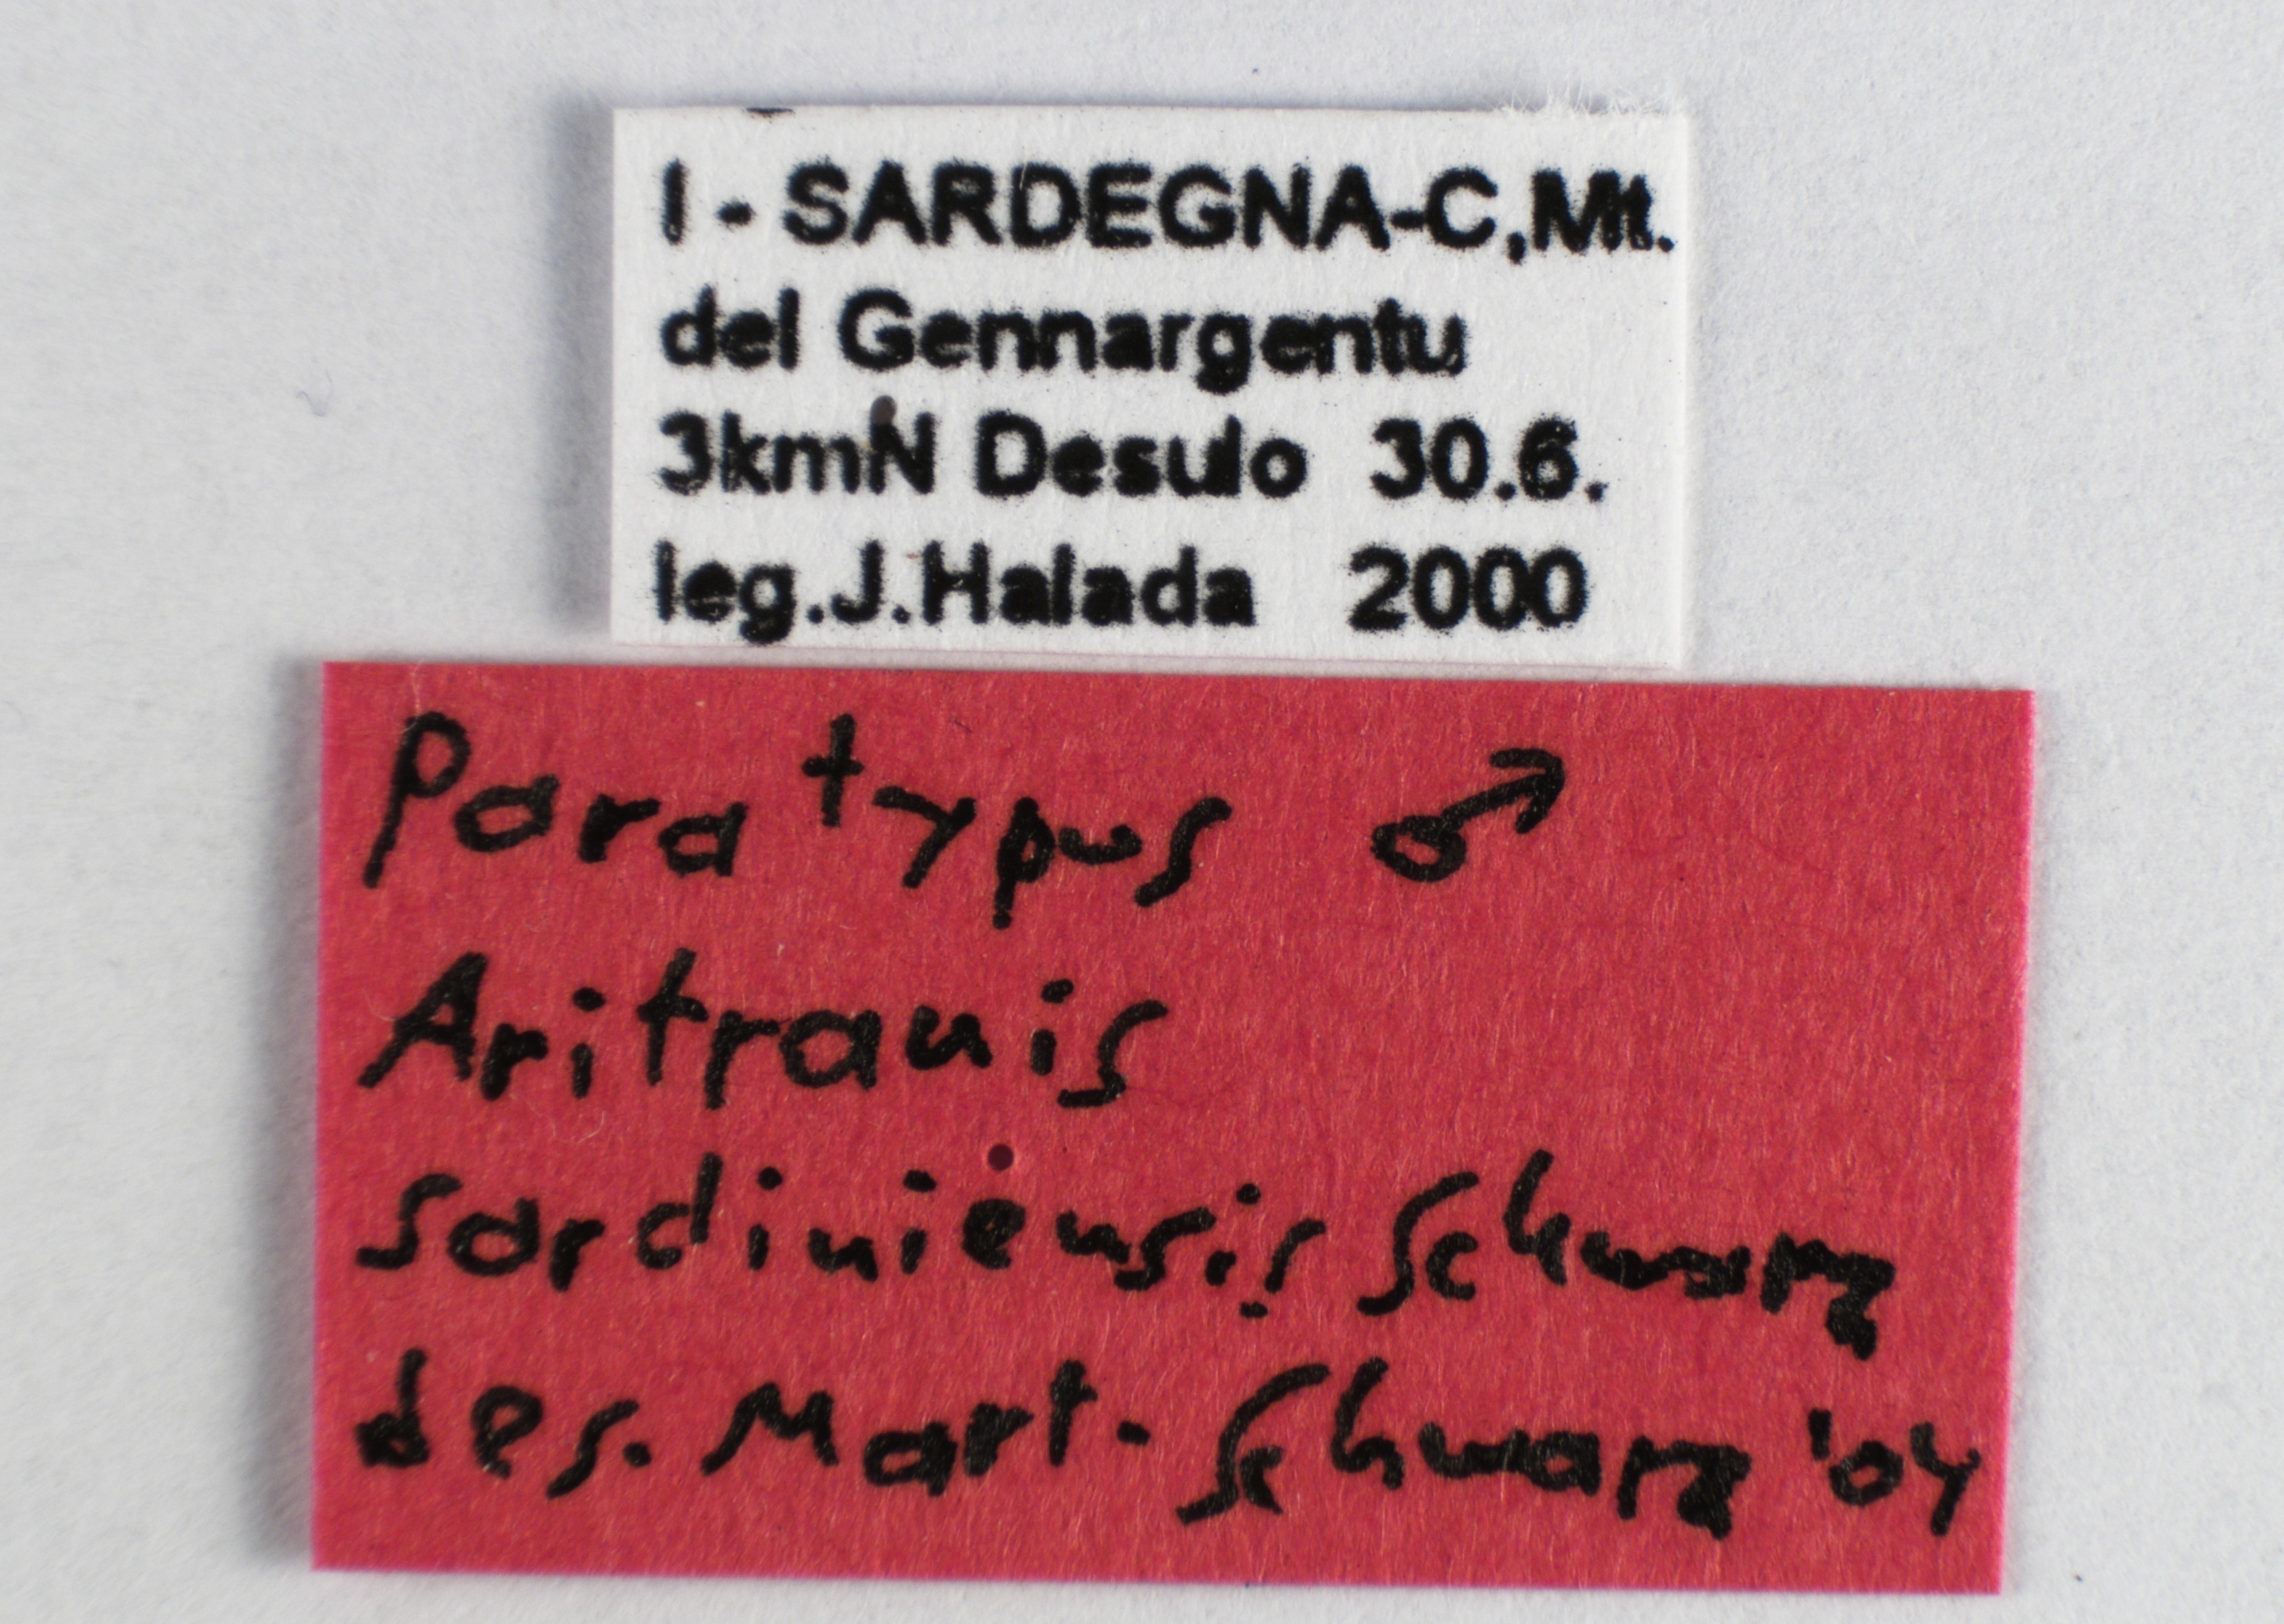 I - SARDEGNA-C,Mt.
del Gennargentu
3kmN Desulo 30.6.
leg.J.Halada 2000
Paratypus ♂
Aritranis
sardiniensis Schwarz
des. Mart. Schwarz '04